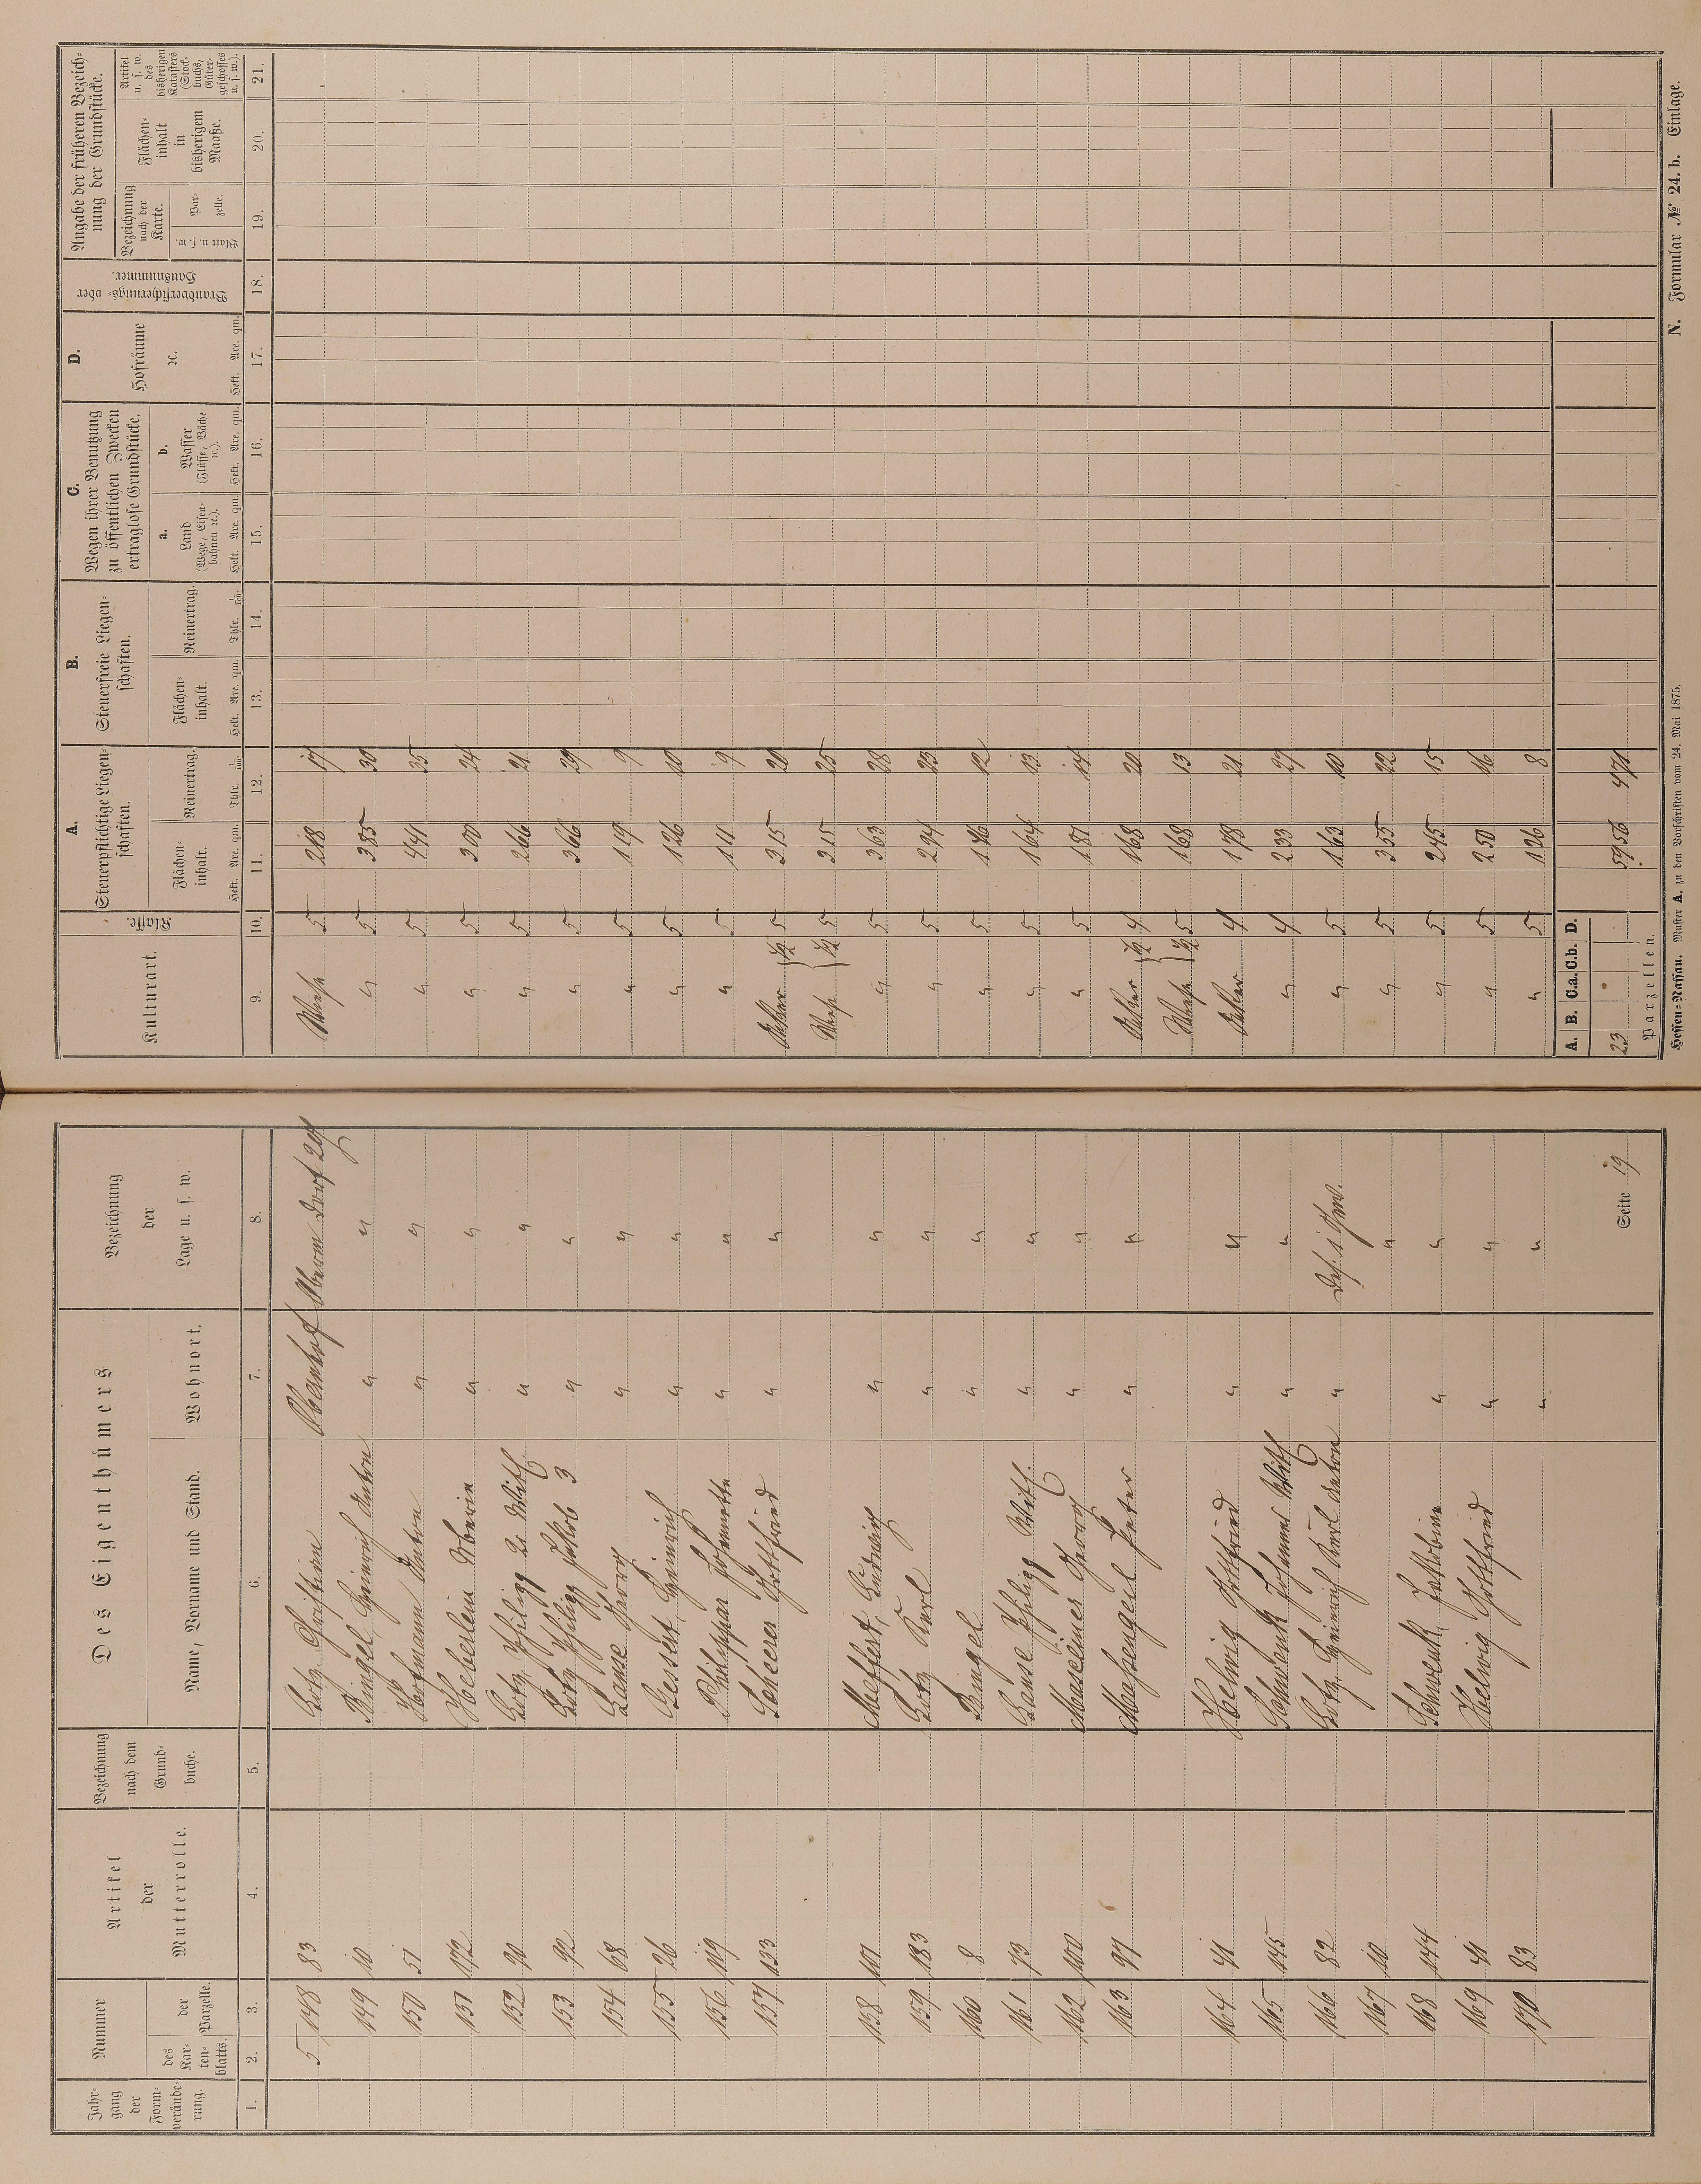 Jahrgang der Formveränderung.
Nummer
des Kartenblatts.
der Parzelle.
Artikel der Mutterrolle.
Bezeichnung nach dem Grundbuche.
Des Eigenthümers
Name, Vorname und Stand.
Wohnort.
Bezeichnung der Lage u. s. w.
1. 2. 3. 4. 5. 6. 7. 8.
5 148 83 Christian
149 10 Bingel, Heinrich Anton " "
150 51 Hofmann Anton " "
151 172 Heberlein " "
152 90 Philipp 2r With " "
153 92 Philipp Jakob 3 " "
154 68 Georg " "
155 26 Gessert, Heinrich " "
156 119 Philippar Johannette " "
157 133 Scheerer Gottfried " "
158 101 Meffert, Ludwig " "
159 183 Karl " "
160 8 Bingel " "
161 73 Philipp With. " "
162 100 Georg " "
163 97 Massengeil Peter " "
164 41 Helwig Gottfried " "
165 145 Schwenk Johannes With " "
166 82 Heinrich Karl Anton "
167 10 "
168 144 Schwenk, Jakobine " "
169 41 Helwig Gottfried " "
170 83 " "
Seite 19
Kulturart.
Klasse.
A.
Steuerpflichtige Liegenschaften.
Flächeninhalt.
Hekt. Are. qm.
Reinertrag.
Thlr. 1/100
B.
Steuerfreie Liegenschaften.
Flächeninhalt.
Hekt. Are. qm.
Reinertrag.
Thlr. 1/100
C.
Wegen ihrer Benutzung zu öffentlichen Zwecken ertraglose Grundstücke.
a. Land (Wege, Eisenbahnen 2c.).
Hekt. Are. qm.
b. Wasser (Flüsse, Bäche 2c.).
Hekt. Are. qm.
D.
Hofräume 2c.
Hekt. Are. qm.
Brandversicherungs- oder Hausnummer.
Angabe der früheren Bezeichnung der Grundstücke.
Bezeichnung nach der Karte.
Blatt u. s. w.
Parzelle.
Flächeninhalt in bisherigem Maaße.
Artikel u. s. w. des bisherigen Katasters (Stockbuchs, Gütergeschosses u. s. w.).
9. 10. 11. 12. 13. 14. 15. 16. 17. 18. 19. 20. 21.
Wiese 5 2 18 17
" 5 3 85 30
" 5 4 41 35
" 5 3 00 24
" 5 2 66 21
" 5 3 66 29
" 5 1 19 9
" 5 1 26 10
" 5 1 11 9
Acker } 1/2 5 3 15 20
Wiese } 1/2 5 3 15 25
" 5 3 63 28
" 5 2 94 23
" 5 1 46 12
" 5 1 64 13
" 5 1 81 14
Acker } 1/2 4 1 68 20
Wiese } 1/2 5 1 68 13
Acker 4 1 78 21
" 4 2 33 27
" 5 1 63 10
" 5 3 55 22
" 5 2 45 15
" 5 2 50 16
" 5 1 26 8
A. B. C.a. C.b. D.
23 59 56 4 71
Parzellen.
Hessen-Nassau. Muster A. zu den Vorschriften vom 24. Mai 1875.
N. Formular № 24. b. Einlage.